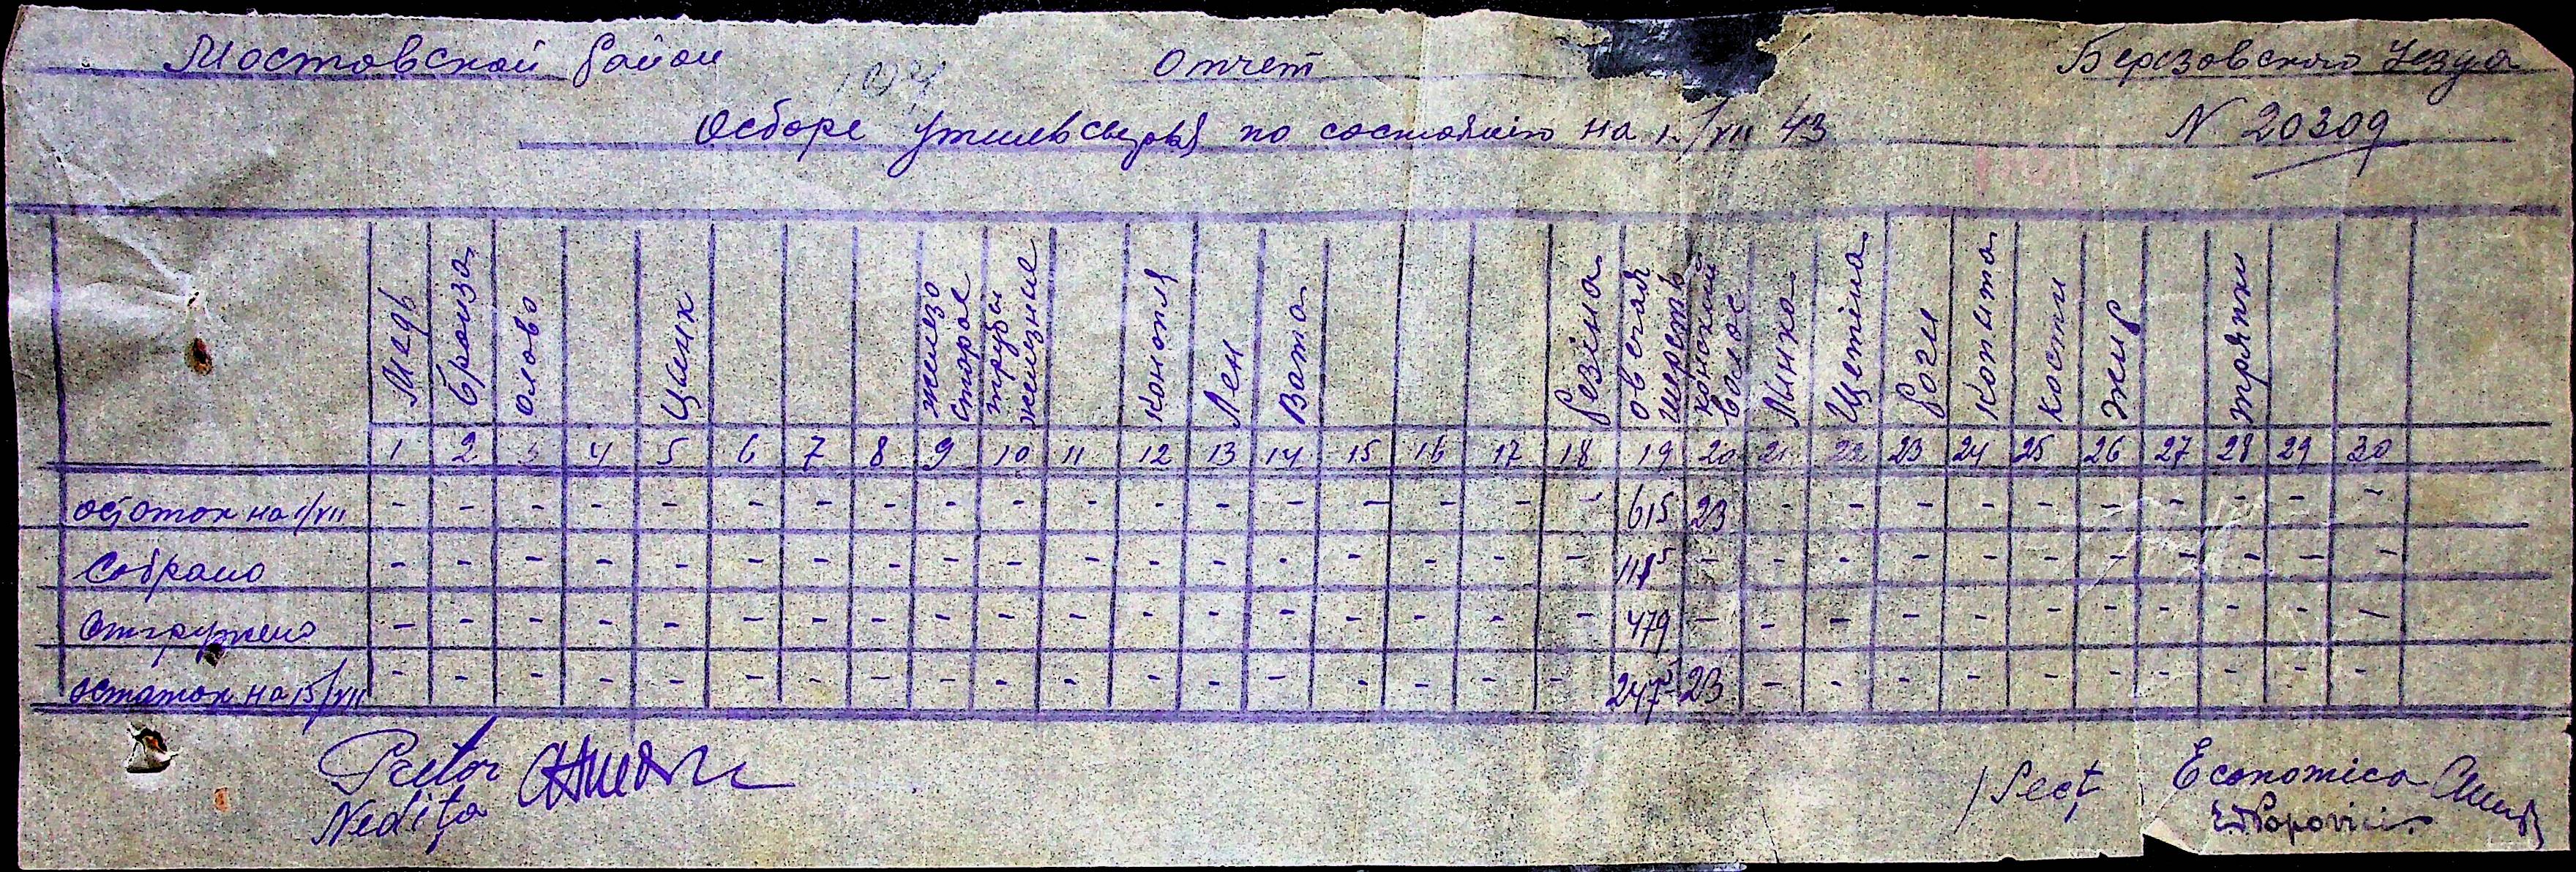 Мостовской район Отчет Березовского Уезда
О сборе утильсырья по состоянию на 1/VII 43 N 20309
Медь Бронза Олово Цинк железо старое трубы железные конопля Лен Вата Резина овечая шерсть конский волос Линка Щетина Роги копыта кости жир тряпки
1 2 3 4 5 6 7 8 9 10 11 12 13 14 15 16 17 18 19 20 21 22 23 24 25 26 27 28 29 30
остаток на 1/VII - - - - - - - - - - - - - - - - - - 615 23 - - - - - - - - - -
Собрано - - - - - - - - - - - - - - - - - - 111⁵ - - - - - - - - - - -
Отгружено - - - - - - - - - - - - - - - - - - 479 - - - - - - - - - - -
остаток на 15/VII - - - - - - - - - - - - - - - - - - 247⁵ 23 - - - - - - - - - -
Pretor
Nedița
Secț. Economica
Popovici